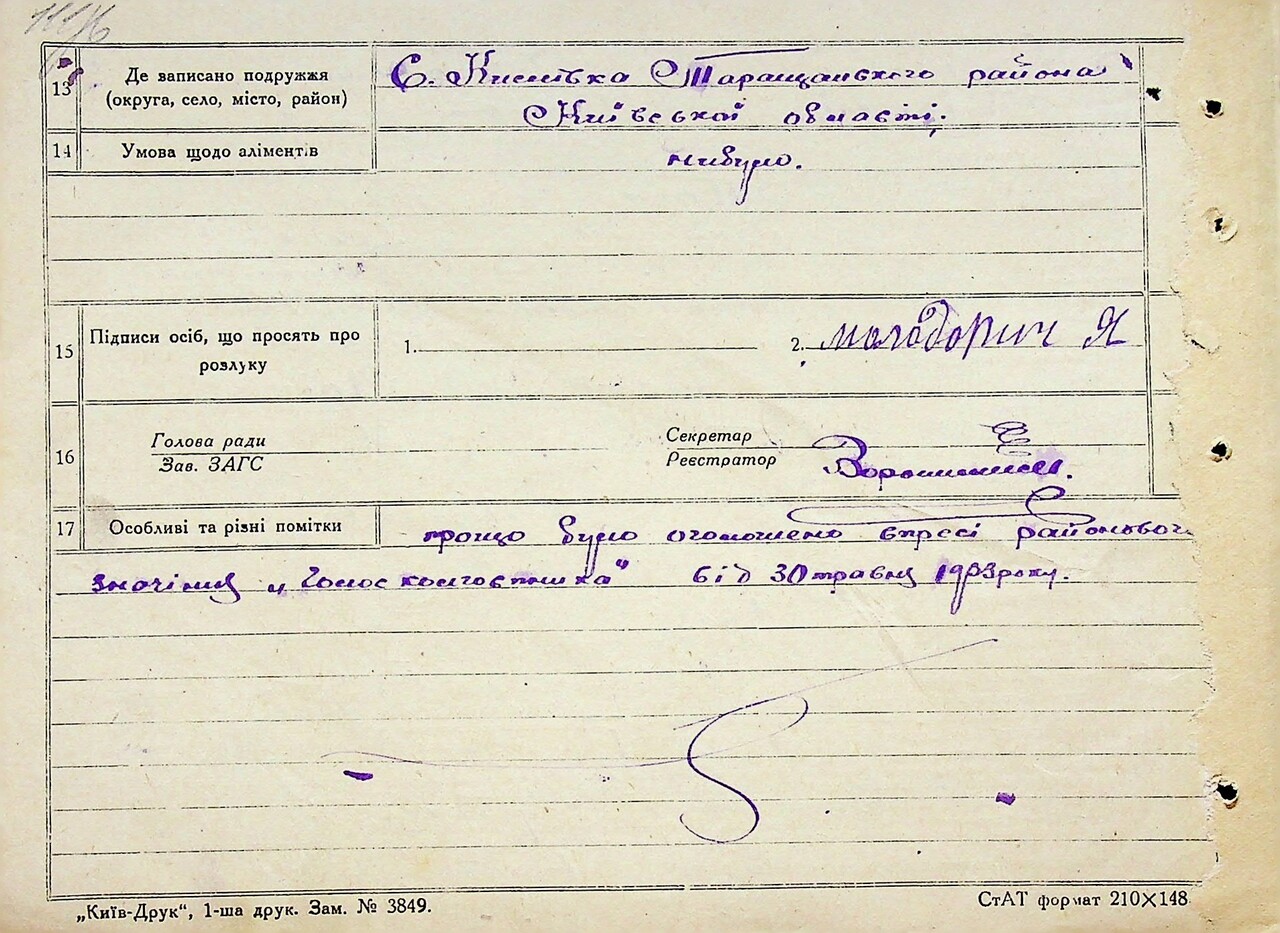 13 Де записано подружжя С. Кислівка Таращанського района
(округа, село, місто, район) Київської області.
14 Умова щодо аліментів небуло.
15 Підписи осіб, що просять про розлуку 1. 2. Молодорич Я
16 Голова ради Секретар
Зав. ЗАГС Реєстратор
17 Особливі та різні помітки прощо було оголошено впресі районовог
значіння „Голос колгоспника" від 30 травня 1953 року.
„Київ-Друк", 1-ша друк. Зам. № 3849. СтАТ формат 210×148